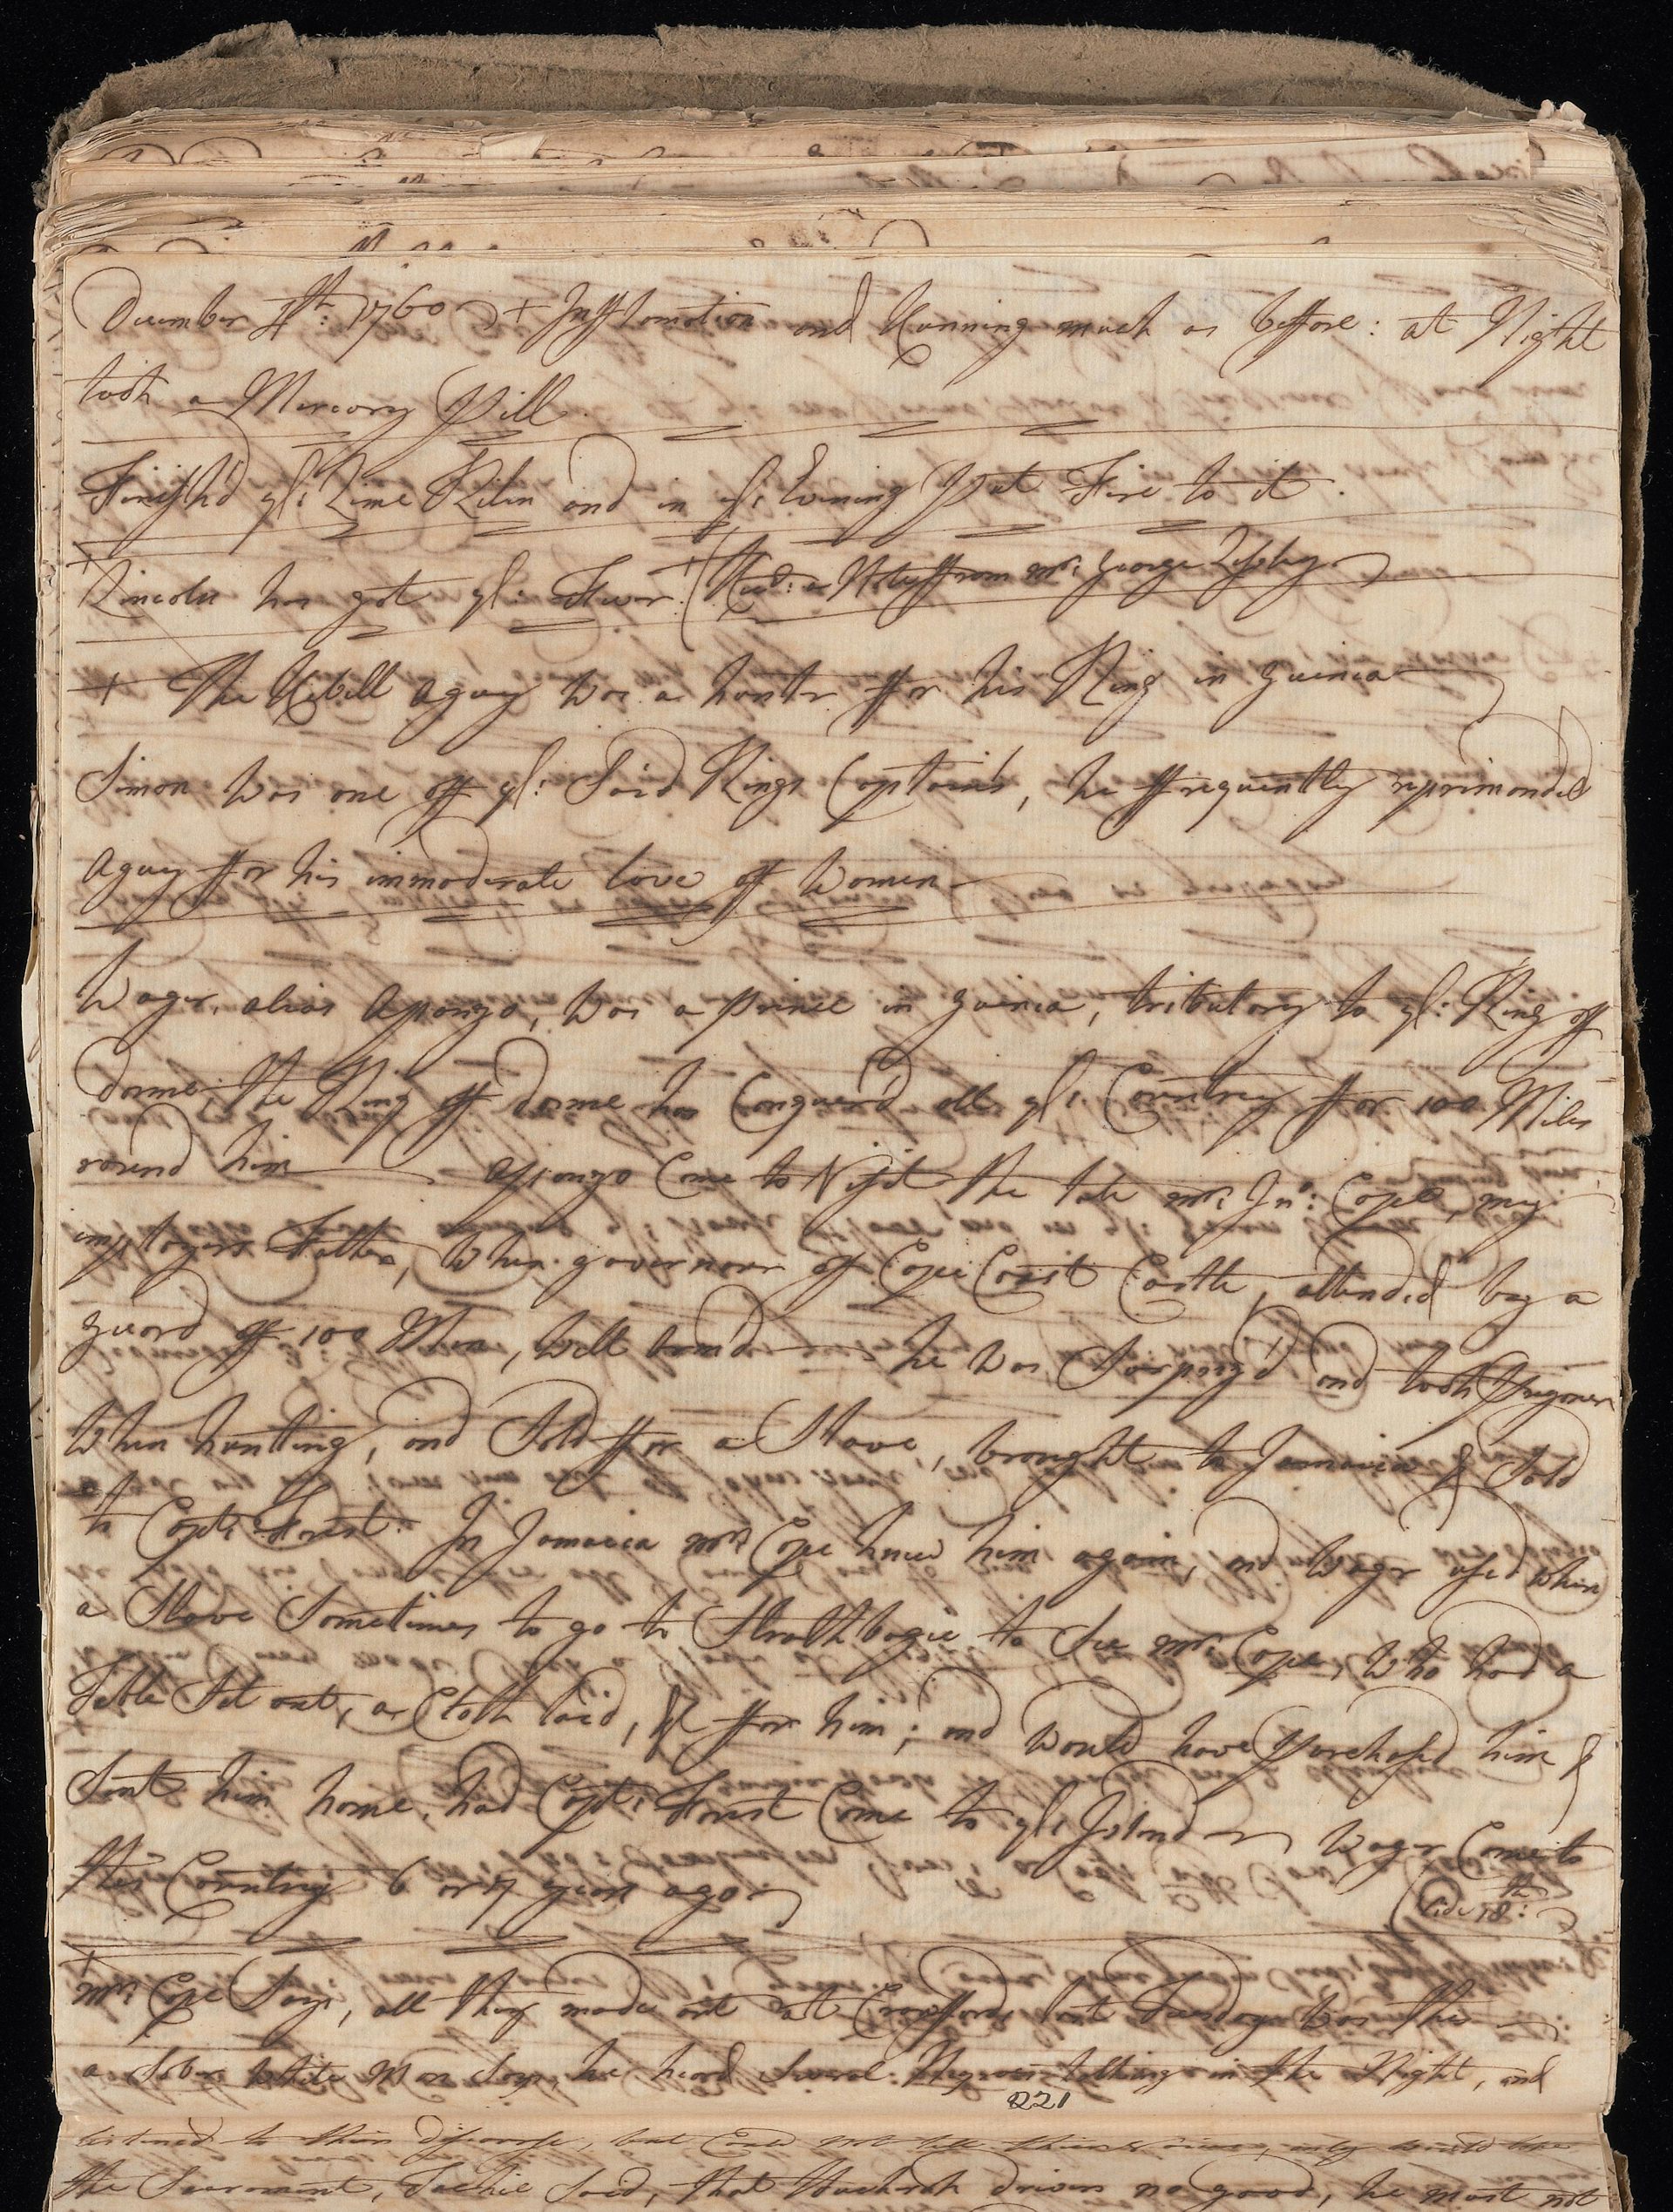 December 4th: 1760 + Inflamation and Running much as beffore: at Night
took a Mercury Pill.
Finish'd ye: Lime Kiln and in ye: Evening Put Fire to it.
+ Lincoln has got ye: Fever. + (Recd: a Note ffrom mr: George Lesley
+ The Rebell Aguy was a hunter ffor his King in Guinea
Simon was one off ye: Said Kings Captains, he ffrequently reprimanded
Aguy ffor his immoderate love off Women
Wager, alias Apongo, was a Prince in Guinea, tributary to ye: King off
Dorme: The King off Dorme has Conquer'd all ye: Country ffor 100 Miles
round him Apongo Came to Visit the late mr: Jno: Cope, my
imployers Father, when governour off Cape Coast Castle, attended by a
guard off 100 Men, well arm'd he was Surpriz'd and took Prizoner
when hunting, and Sold ffor a Slave, brought to Jamaica & Sold
to Capt: Forest: In Jamaica mr: Cope knew him again, and Wager used when
a Slave Sometimes to go to Strathbogie to See mr: Cope, who had a
Table Set out, a Cloth laid, &c ffor him; and would have Purchased him &
Sent him home, had Capt: Forest Come to ye: Island Wager Came to
this Country 6 or 7 years ago.
(Vide 18th:
+ mr: Cope Says, all they made out at Crawffords last Tuesday was this
a Sober white Man Says, he heard Several Negroes talking in the Night, and
221
listened to their discourse, but Could not
the Sacrament, Jackie Said, that Backrah drivers no good, he must not